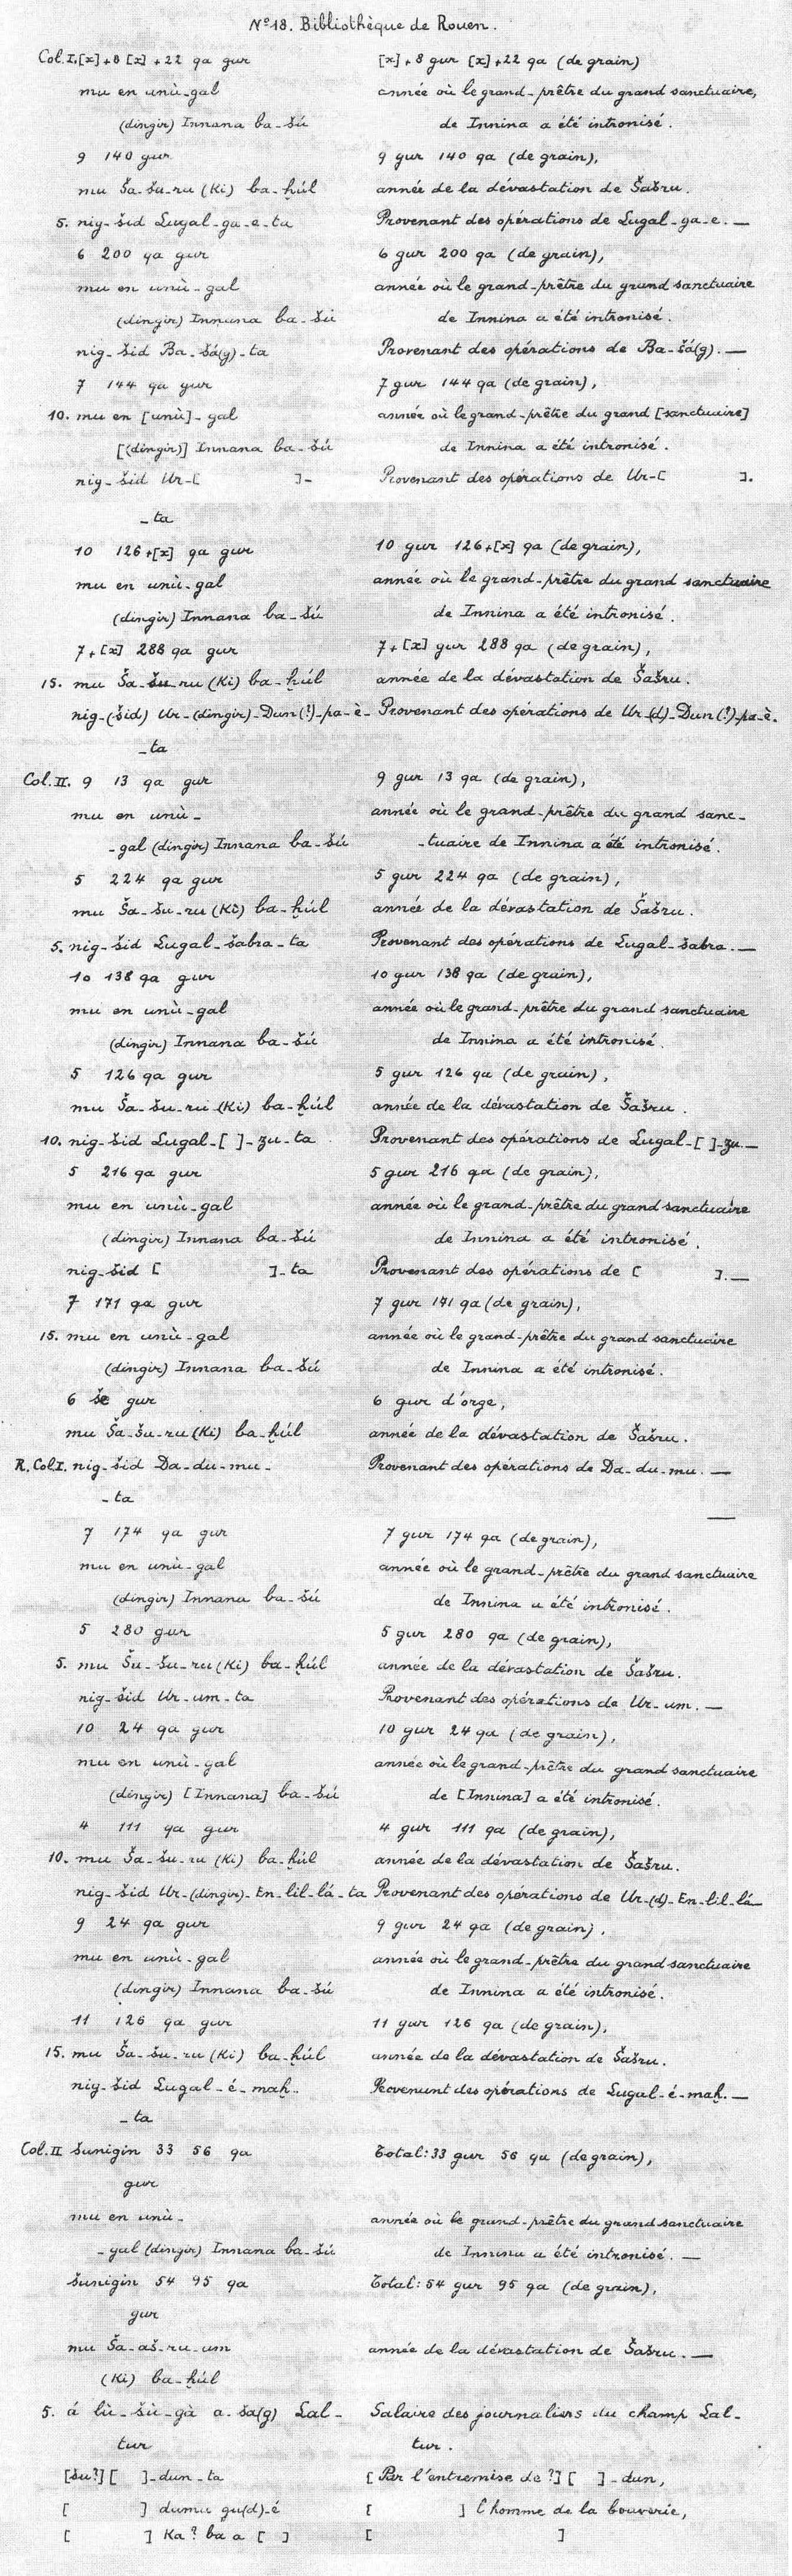 Nº18. Bibliothèque de Rouen.
Col.I. [x]+8 [x]+22 qa gur [x]+8 gur [x]+22 qa (de grain)
mu en unù-gal année où le grand-prêtre du grand sanctuaire,
(dingir) Innana ba-šú de Innina a été intronisé.
9 140 gur 9 gur 140 qa (de grain),
mu Ša-šu-ru (Ki) ba-ḫúl année de la dévastation de Šašru.
5. nig-šid Lugal-ga-e-ta Provenant des opérations de Lugal-ga-e. —
6 200 qa gur 6 gur 200 qa (de grain),
mu en unù-gal année où le grand-prêtre du grand sanctuaire
(dingir) Innana ba-šú de Innina a été intronisé.
nig-šid Ba-šá(g)-ta Provenant des opérations de Ba-šá(g). —
7 144 qa gur 7 gur 144 qa (de grain),
10. mu en [unù]-gal année où le grand-prêtre du grand [sanctuaire]
[(dingir)] Innana ba-šú de Innina a été intronisé.
nig-šid Ur-[ ]- Provenant des opérations de Ur-[ ].
-ta
10 126+[x] qa gur 10 gur 126+[x] qa (de grain),
mu en unù-gal année où le grand-prêtre du grand sanctuaire
(dingir) Innana ba-šú de Innina a été intronisé.
7+[x] 288 qa gur 7+[x] gur 288 qa (de grain),
15. mu Ša-šu-ru (Ki) ba-ḫúl année de la dévastation de Šašru.
nig-(šid) Ur-(dingir)-Dun(?)-pa-è- Provenant des opérations de Ur-(d)-Dun(?)-pa-è.
-ta
Col.II. 9 13 qa gur 9 gur 13 qa (de grain),
mu en unù- année où le grand-prêtre du grand sanc-
-gal (dingir) Innana ba-šú -tuaire de Innina a été intronisé.
5 224 qa gur 5 gur 224 qa (de grain),
mu Ša-šu-ru (Ki) ba-ḫúl année de la dévastation de Šašru.
5. nig-šid Lugal-šabra-ta Provenant des opérations de Lugal-šabra. —
10 138 qa gur 10 gur 138 qa (de grain),
mu en unù-gal année où le grand-prêtre du grand sanctuaire
(dingir) Innana ba-šú de Innina a été intronisé.
5 126 qa gur 5 gur 126 qa (de grain),
mu Ša-šu-ru (Ki) ba-ḫúl année de la dévastation de Šašru.
10. nig-šid Lugal-[ ]-zu-ta Provenant des opérations de Lugal-[ ]-zu. —
5 216 qa gur 5 gur 216 qa (de grain),
mu en unù-gal année où le grand-prêtre du grand sanctuaire
(dingir) Innana ba-šú de Innina a été intronisé.
nig-šid [ ]-ta Provenant des opérations de [ ]. —
7 171 qa gur 7 gur 171 qa (de grain),
15. mu en unù-gal année où le grand-prêtre du grand sanctuaire
(dingir) Innana ba-šú de Innina a été intronisé.
6 še gur 6 gur d'orge,
mu Ša-šu-ru (Ki) ba-ḫúl année de la dévastation de Šašru.
R. Col.I. nig-šid Da-du-mu- Provenant des opérations de Da-du-mu. —
-ta
7 174 qa gur 7 gur 174 qa (de grain),
mu en unù-gal année où le grand-prêtre du grand sanctuaire
(dingir) Innana ba-šú de Innina a été intronisé.
5 280 gur 5 gur 280 qa (de grain),
5. mu Ša-šu-ru (Ki) ba-ḫúl année de la dévastation de Šašru.
nig-šid Ur-um-ta Provenant des opérations de Ur-um. —
10 24 qa gur 10 gur 24 qa (de grain),
mu en unù-gal année où le grand-prêtre du grand sanctuaire
(dingir) [Innana] ba-šú de [Innina] a été intronisé.
4 111 qa gur 4 gur 111 qa (de grain),
10. mu Ša-šu-ru (Ki) ba-ḫúl année de la dévastation de Šašru.
nig-šid Ur-(dingir)-En-lil-lá-ta Provenant des opérations de Ur-(d)-En-lil-lá—
9 24 qa gur 9 gur 24 qa (de grain),
mu en unù-gal année où le grand-prêtre du grand sanctuaire
(dingir) Innana ba-šú de Innina a été intronisé.
11 126 qa gur 11 gur 126 qa (de grain),
15. mu Ša-šu-ru (Ki) ba-ḫúl année de la dévastation de Šašru.
nig-šid Lugal-é-maḫ- Provenant des opérations de Lugal-é-maḫ. —
-ta
Col.II šunigin 33 56 qa Total: 33 gur 56 qa (de grain),
gur
mu en unù- année où le grand-prêtre du grand sanctuaire
-gal (dingir) Innana ba-šú de Innina a été intronisé. —
šunigin 54 95 qa Total: 54 gur 95 qa (de grain),
gur
mu Ša-aš-ru-um année de la dévastation de Šašru. —
(Ki) ba-ḫúl
5. á lù-šù-gà a-ša(g) Lal- Salaire des journaliers du champ Lal-
tur tur.
[šu?] [ ]-dun-ta [Par l'entremise de ?] [ ]-dun,
[ ] dumu gu(d)-é [ ] l'homme de la bouverie,
[ ] Ka? ba a [ ] [ ]